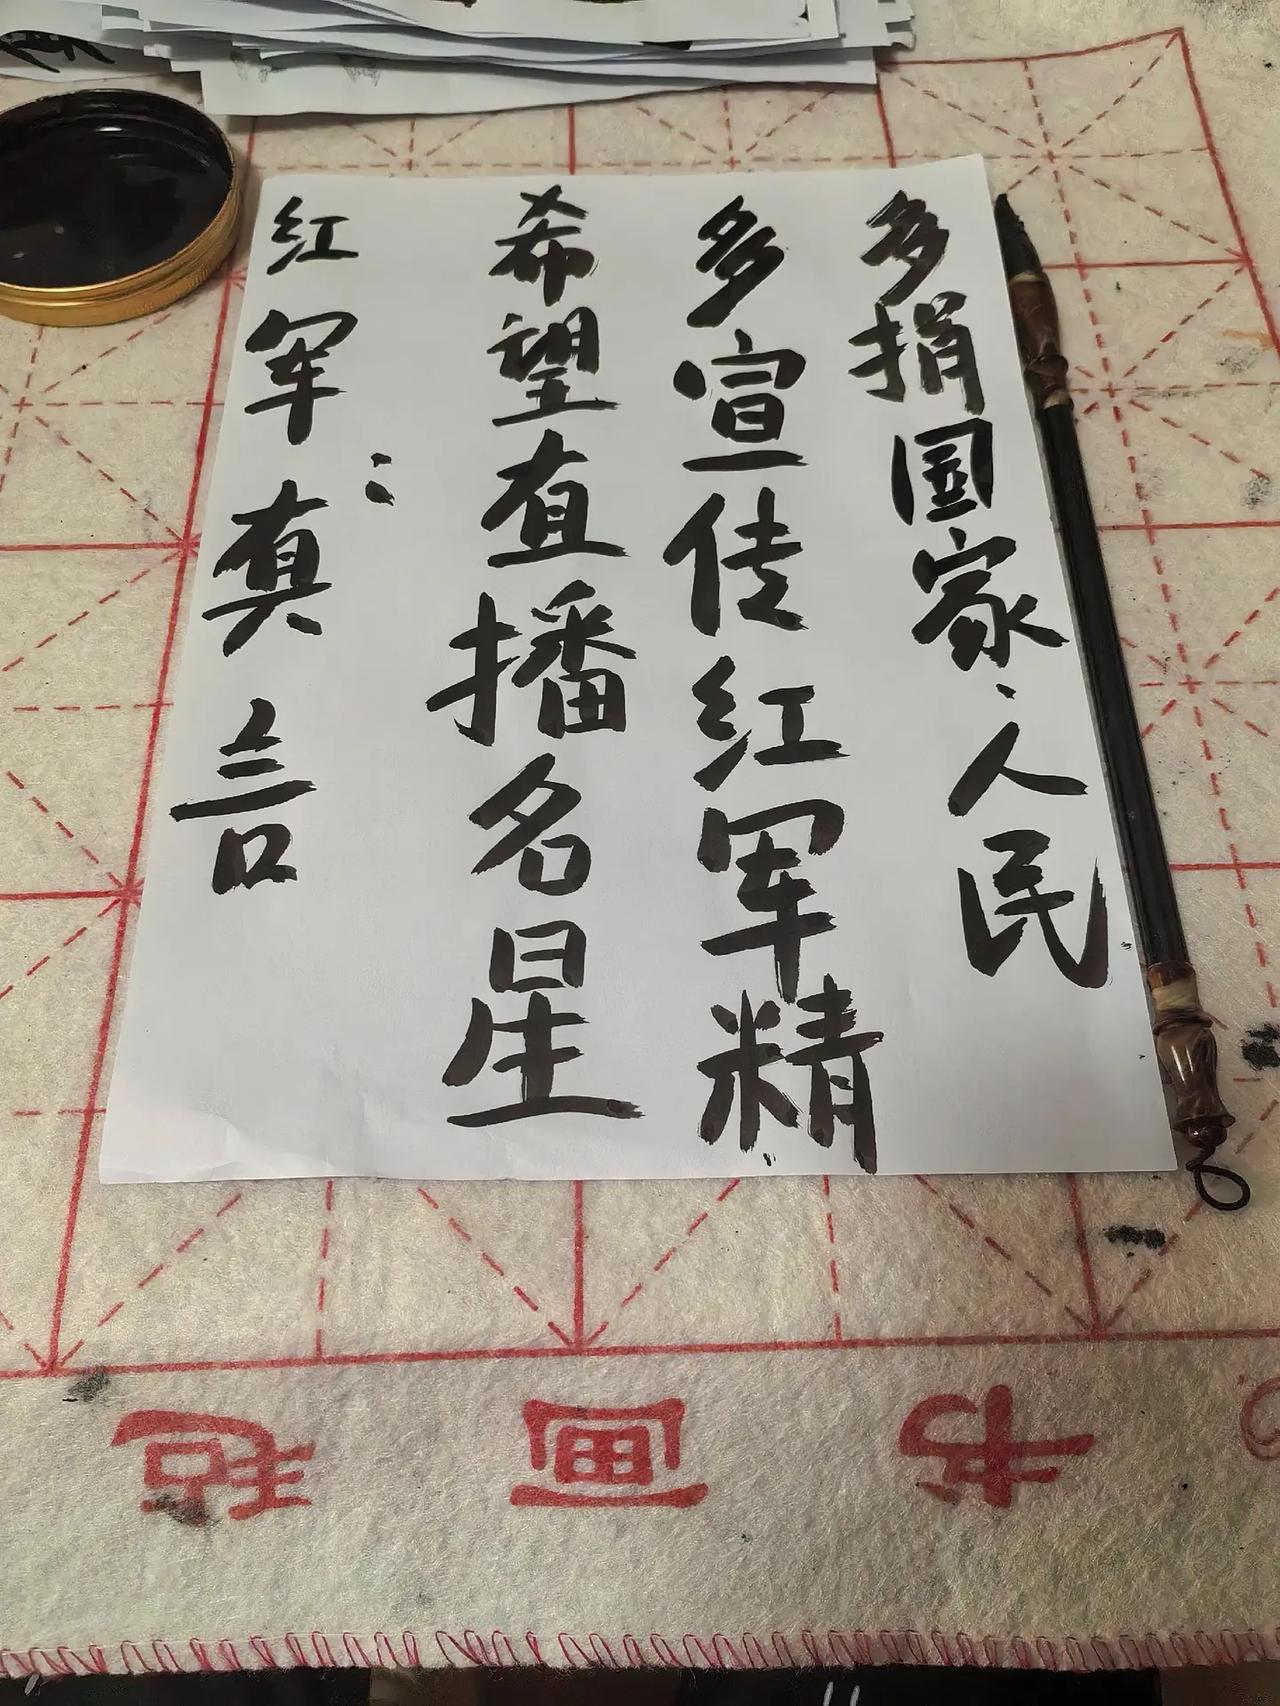 红军真言：
希望直播名星
多宣传红军精
多捐国家、人民
书画毡